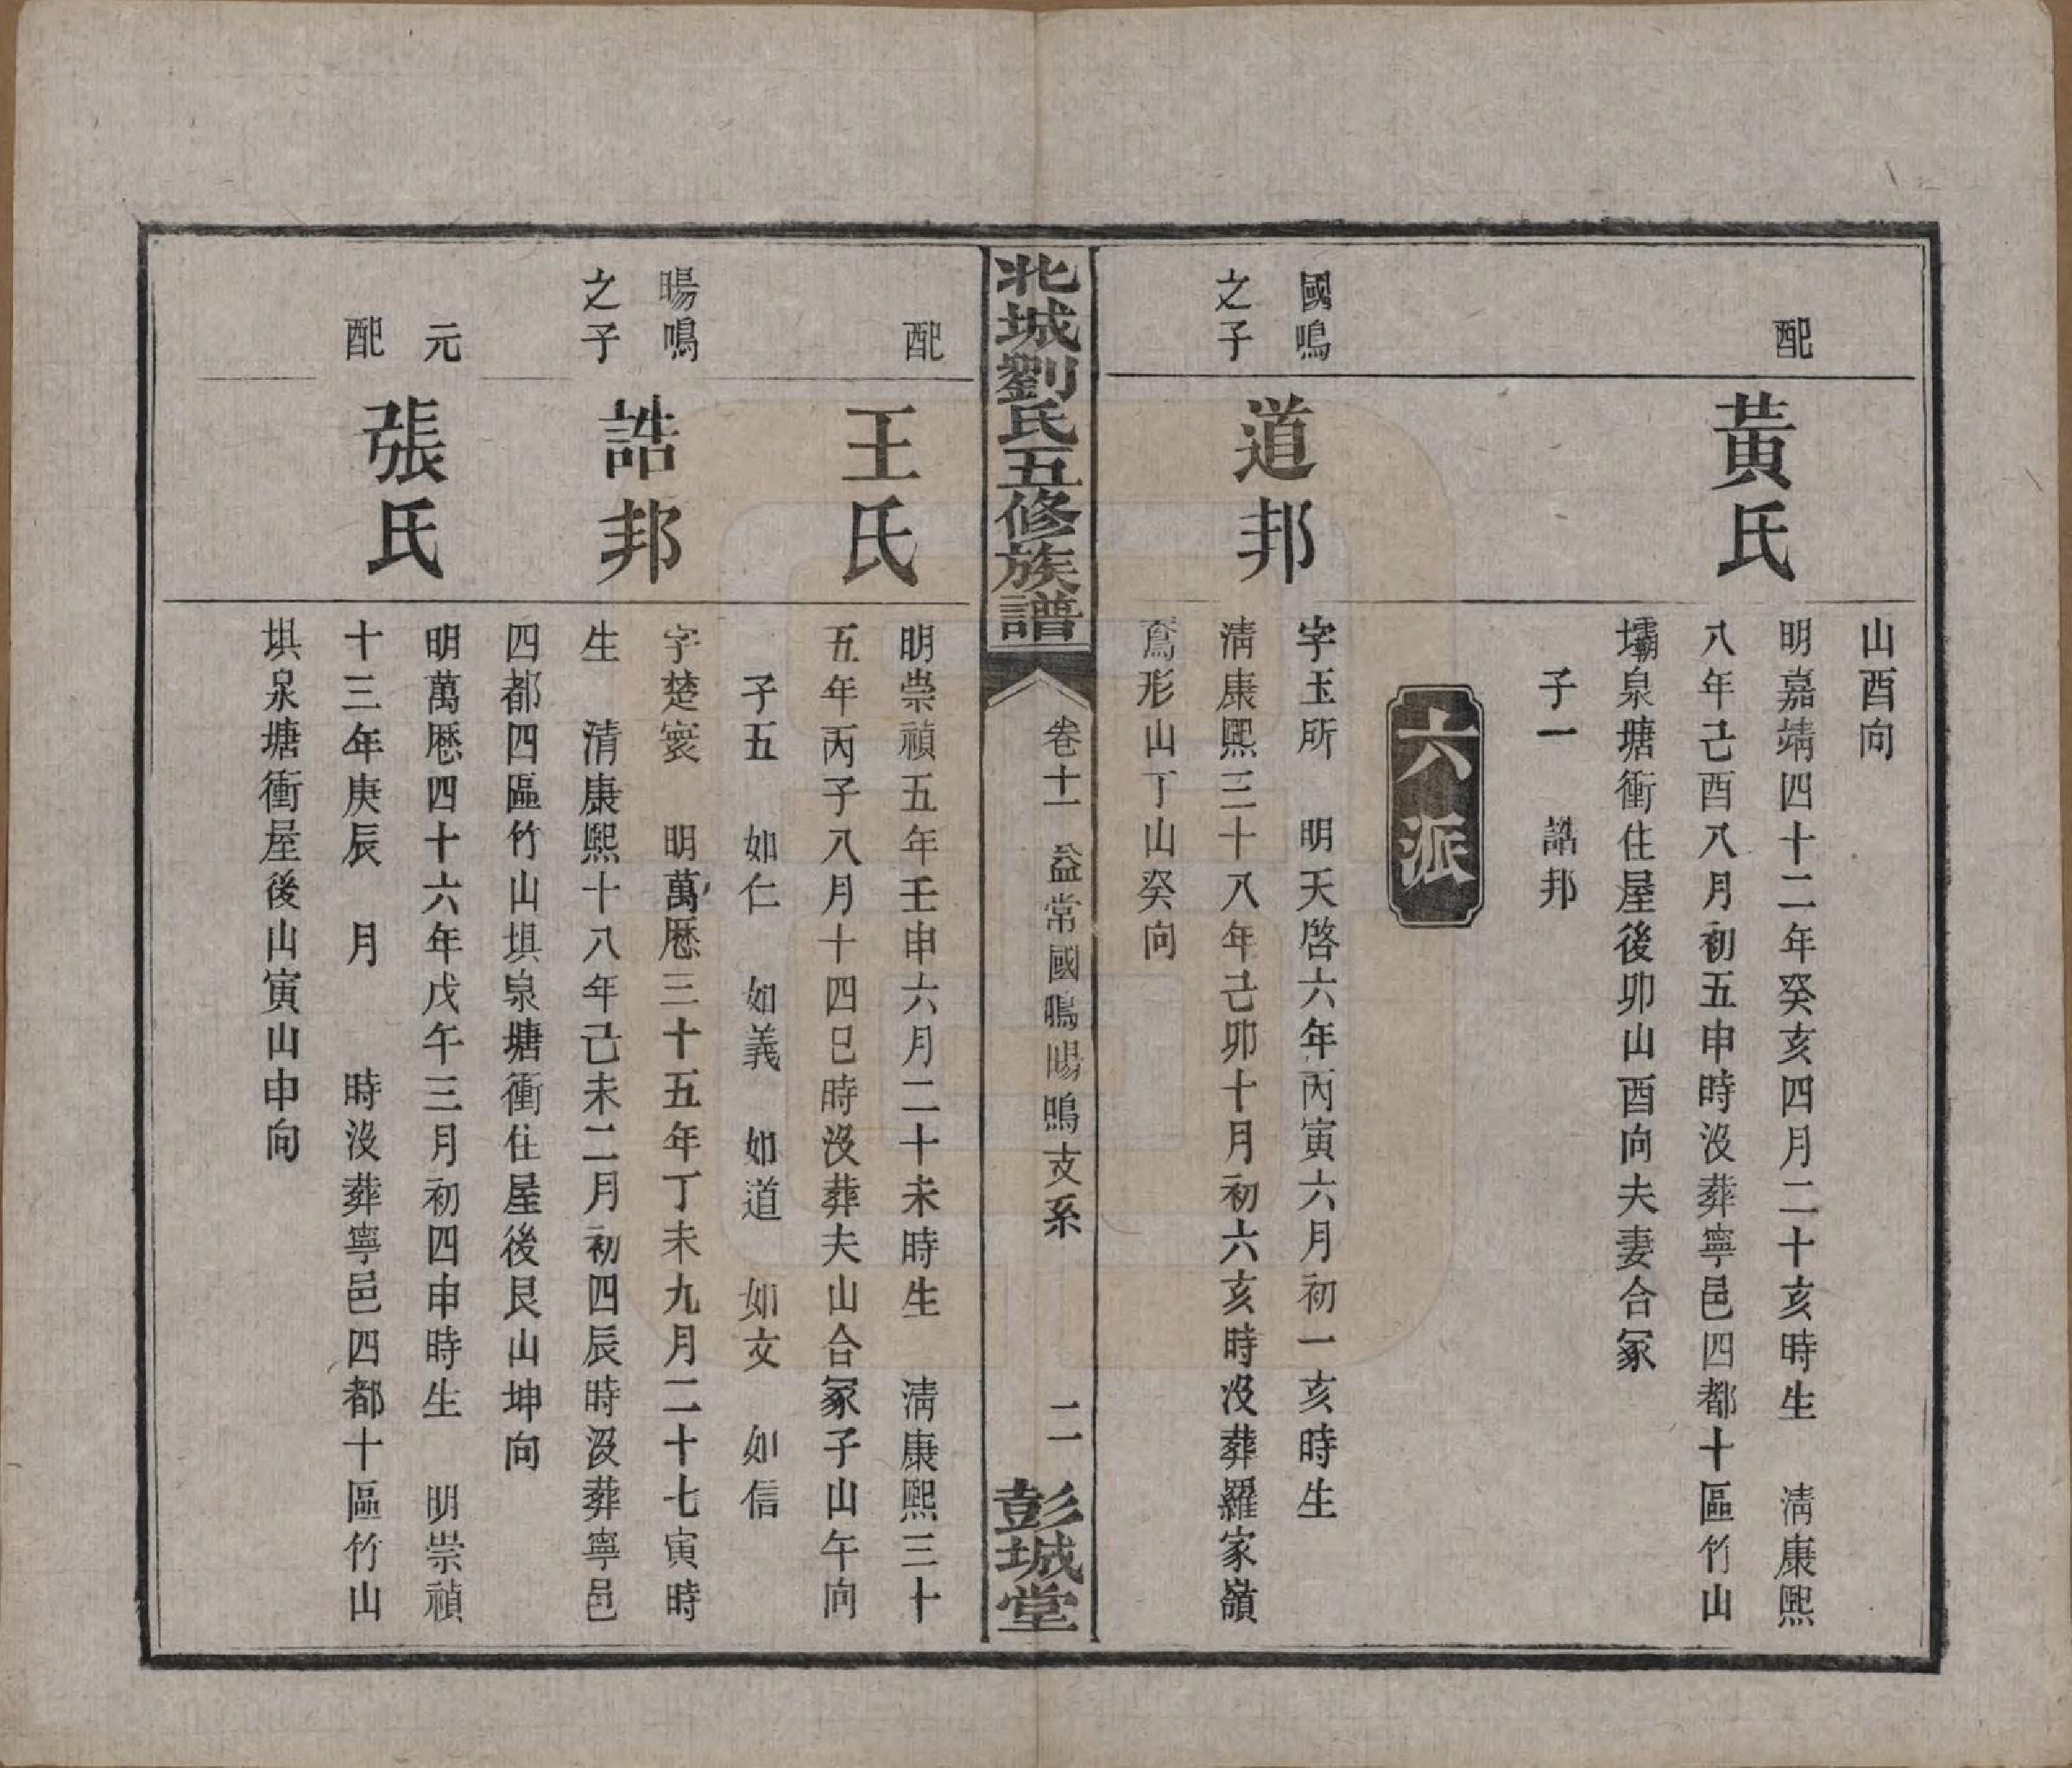 山酉向
配
黃氏
明嘉靖四十二年癸亥四月二十亥時生　淸康熙
八年己酉八月初五申時沒葬寧邑四都十區竹山
壩泉塘衝住屋後卯山酉向夫妻合冢
子一　誥邦
六派
國鳴
之子
道邦
字玉所　明天啓六年丙寅六月初一亥時生
淸康熙三十八年己卯十月初六亥時沒葬羅家嶺
鴌形山丁山癸向
北城劉氏五修族譜
卷十一　益常國鳴陽鳴支系
二
彭城堂
配
王氏
明崇禎五年壬申六月二十未時生　淸康熙三十
五年丙子八月十四巳時沒葬夫山合冢子山午向
子五　如仁　如義　如道　如文　如信
暘鳴
之子
誥邦
字楚寰　明萬厯三十五年丁未九月二十七寅時
生　清康熙十八年己未二月初四辰時沒葬寧邑
四都四區竹山埧泉塘衝住屋後艮山坤向
元
配
張氏
明萬厯四十六年戊午三月初四申時生　明崇禎
十三年庚辰　月　　時沒葬寧邑四都十區竹山
埧泉塘衝屋後山寅山申向